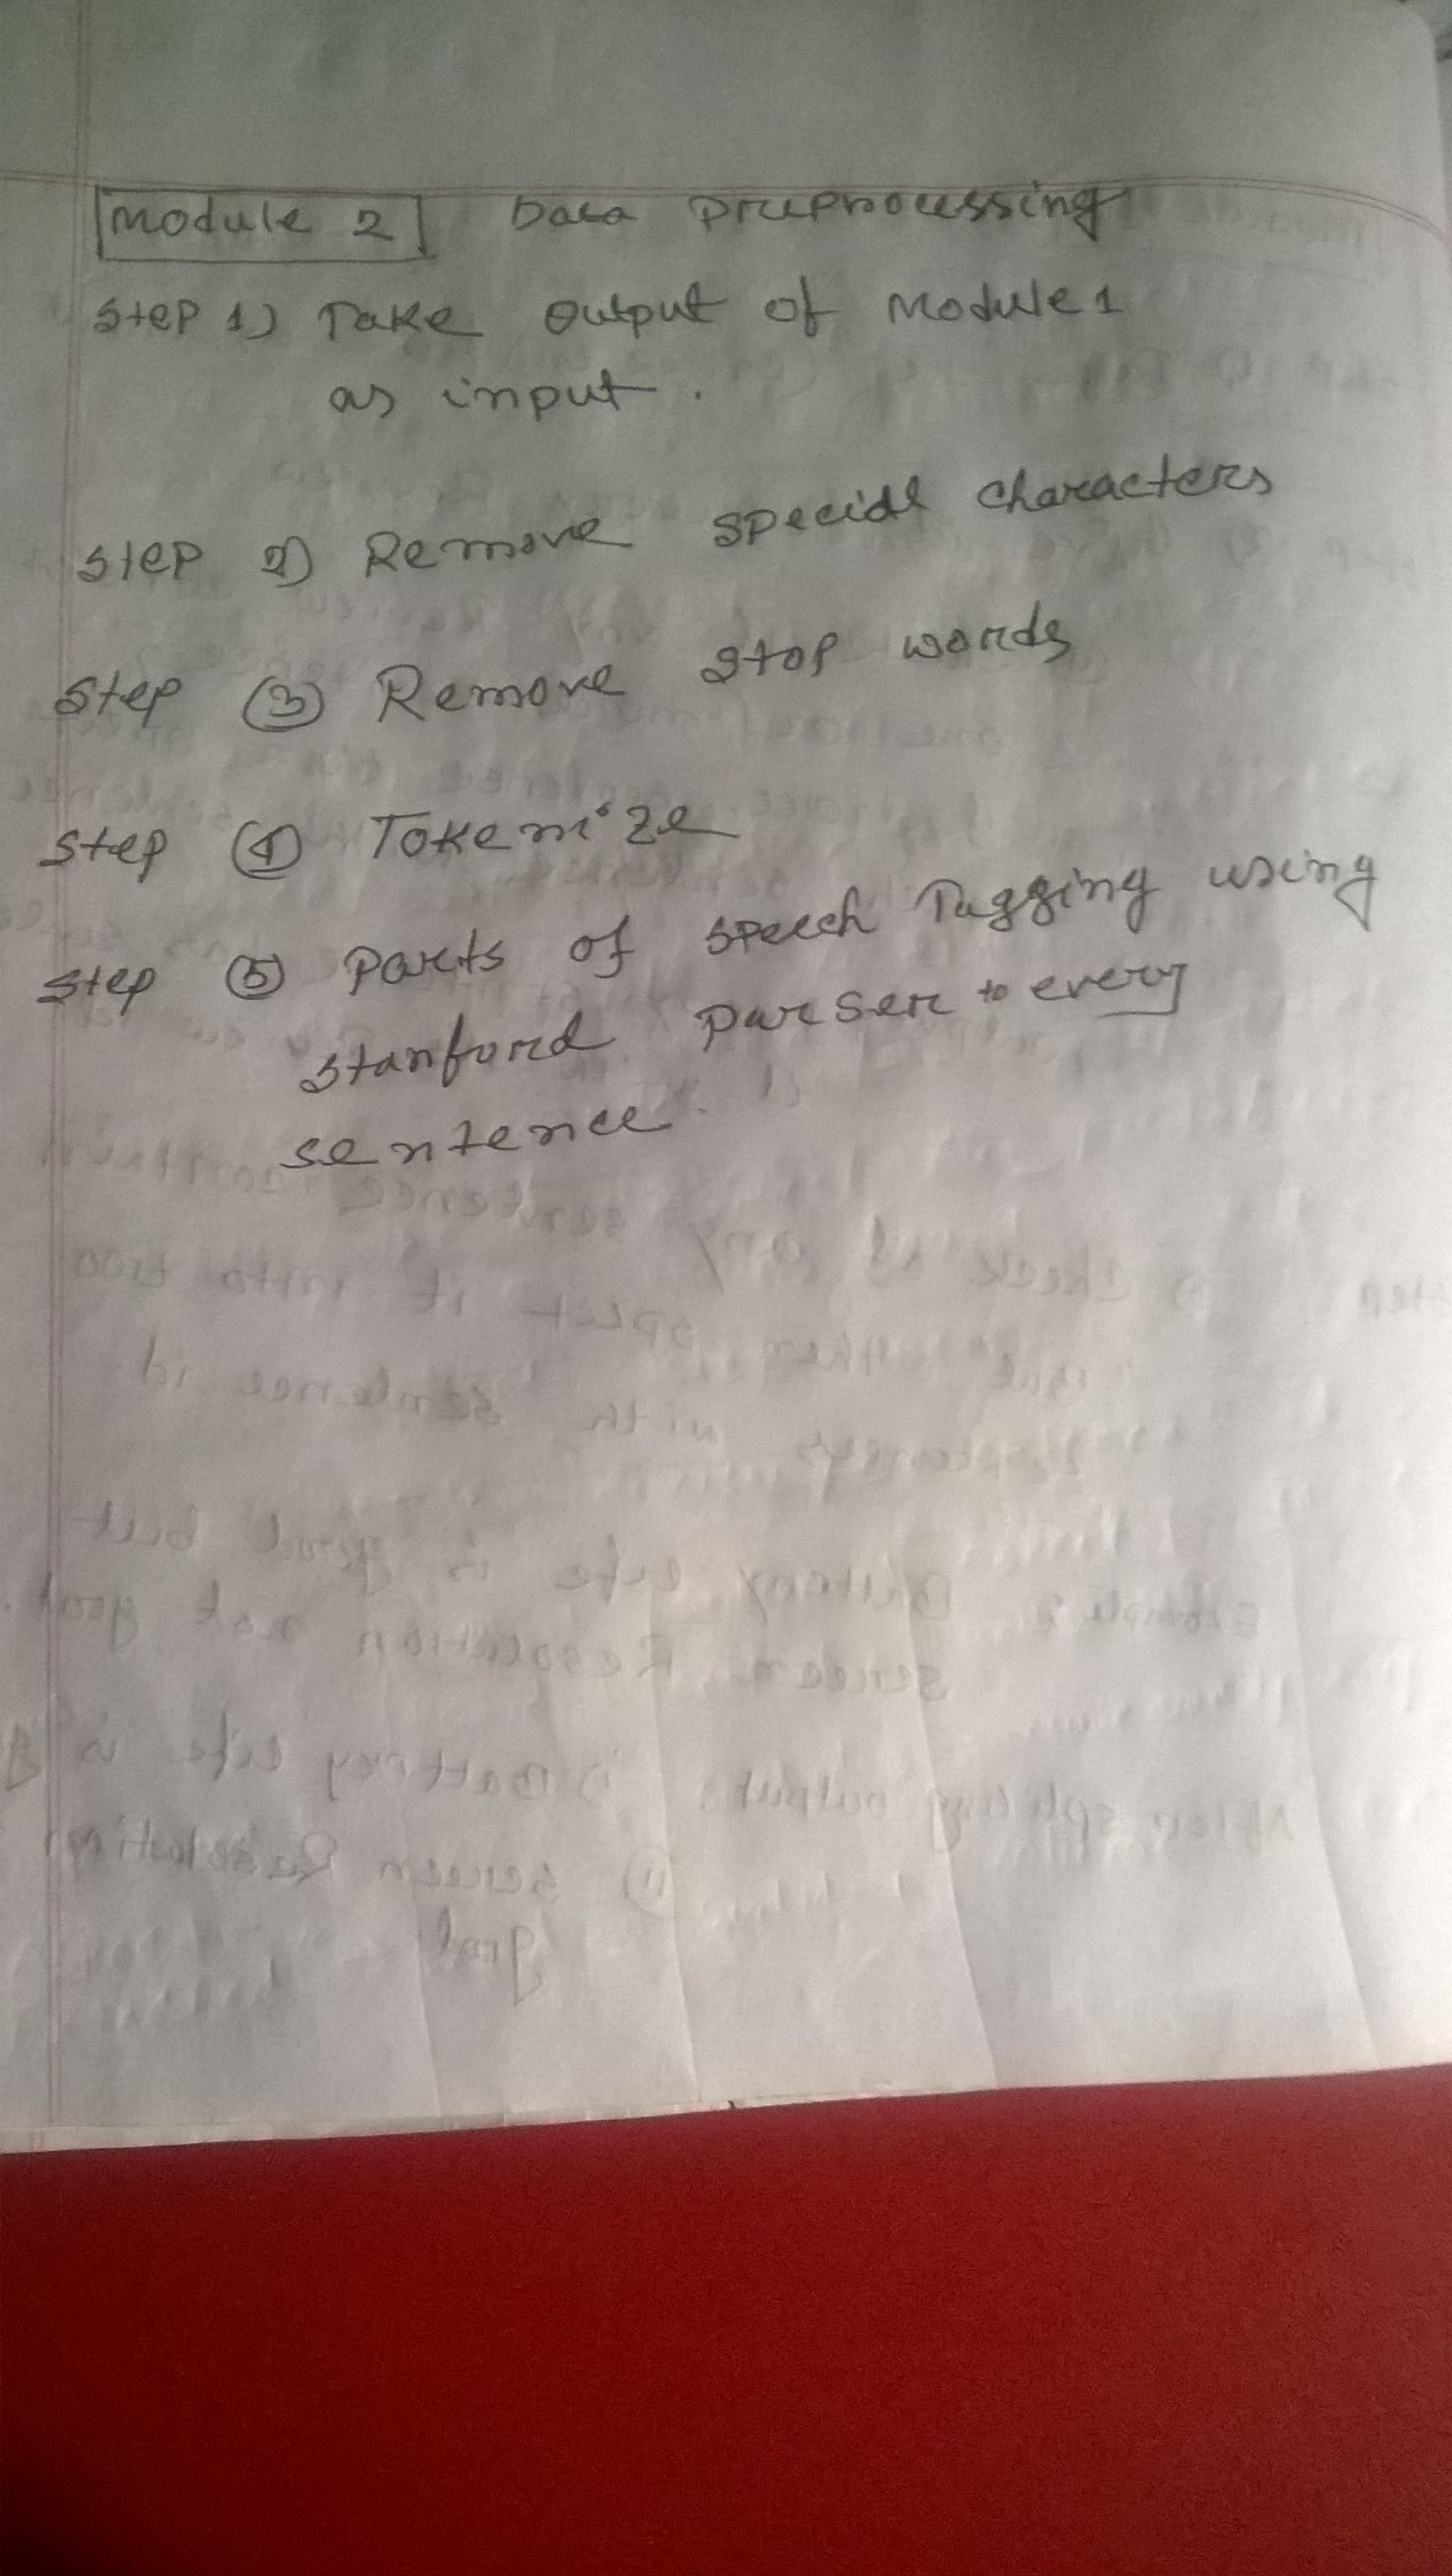 Module 2 Data Preprocessing
Step 1) Take Output of Module 1
as input.
Step 2) Remove special characters
Step (3) Remove stop words
Step (4) Tokenize
Step (5) Parts of speech Tagging using
stanford parser to every
sentence.